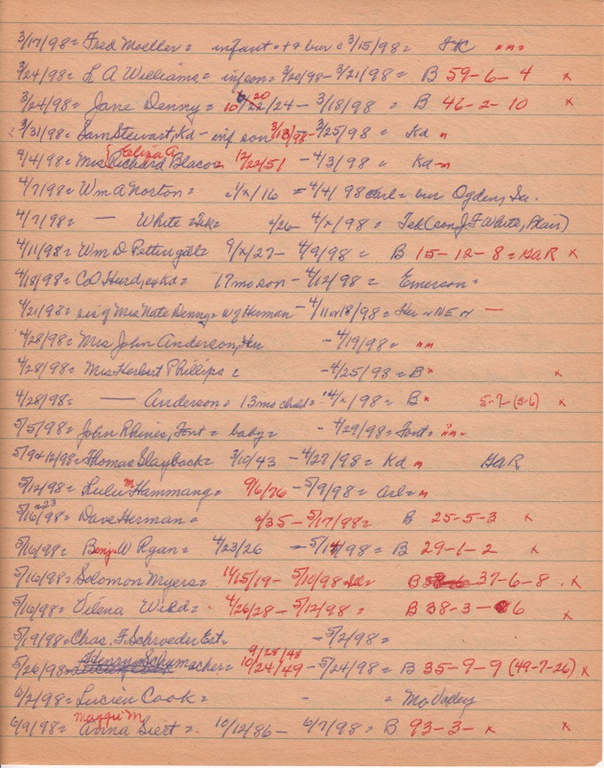 3/17/98 = Fred Moeller = infant = + & bur c 3/15/98 = TK "n=
3/24/98 = L A Williams = inf son = 3/20/98 - 3/21/98 = B 59-6-4 x
3/24/98 = Jane Denny = 10/22/24 - 3/18/98 = B 46-2-10 x
3/31/98 = Sam Stewart, Kd - inf son 3/13/98 - 3/25/98 = Kd n
Eliza A
4/4/98 = Mrs Richard Blacor 12/22/51 - 4/3/98 = Kd n
4/7/98 = Wm A Norton = c/x/16 = 4/4/98 Arl = bur Ogden, Ia.
4/7/98 = — White = Tek = 4/26 - 4/x/98 = Tek (son J F White, Plain)
4/11/98 = Wm D Pettingill = 9/x/27 - 4/9/98 = B 15-12-8 = GAR x
4/18/98 = C D Hurdsey Kd = 17 mo son - 4/12/98 = Emerson =
4/21/98 = sis of Mrs Nate Denny = w of Human - 4/11 or 18/98 = Her n NE n —
4/28/98 = Mrs John Anderson, Her - 4/19/98 = "n
4/28/98 = Mrs Herbert Phillips c - 4/25/98 = B x
4/28/98 = — Anderson = 13 mo child = 4/x/98 = B 5-2 (5-6) x
5/5/98 = John Rhines, Font = baby = - 4/29/98 = Font = "n=
5/9 & 12/98 = Thomas Slayback = 3/10/43 - 4/27/98 = Kd n GAR
5/12/98 = Lulu M Hammang = 9/6/76 - 5/9/98 = Arl = n
5/16 & 23/98 = Dave Herman = c/35 - 5/17/98 = B 25-5-3 x
5/16/98 = Benj W Ryan = 4/23/26 - 5/14/98 = B 29-1-2 x
5/16/98 = Solomon Myers = 11/15/19 - 5/10/98 = B 37-6-8 x
5/16/98 = Vilena Wild = 4/26/28 - 5/12/98 = B 38-3-6 x
5/19/98 = Chas. F. Schroeder Est = - 5/2/98 =
9/28/48
5/26/98 = Henry Schumacher = 10/24/49 - 5/24/98 = B 35-9-9 (49-7-26) x
6/2/98 = Lucien Cook = - = Mo Valley
Maggie M
6/9/98 = Anna Siert = 10/12/86 - 6/7/98 = B 93-3-x x